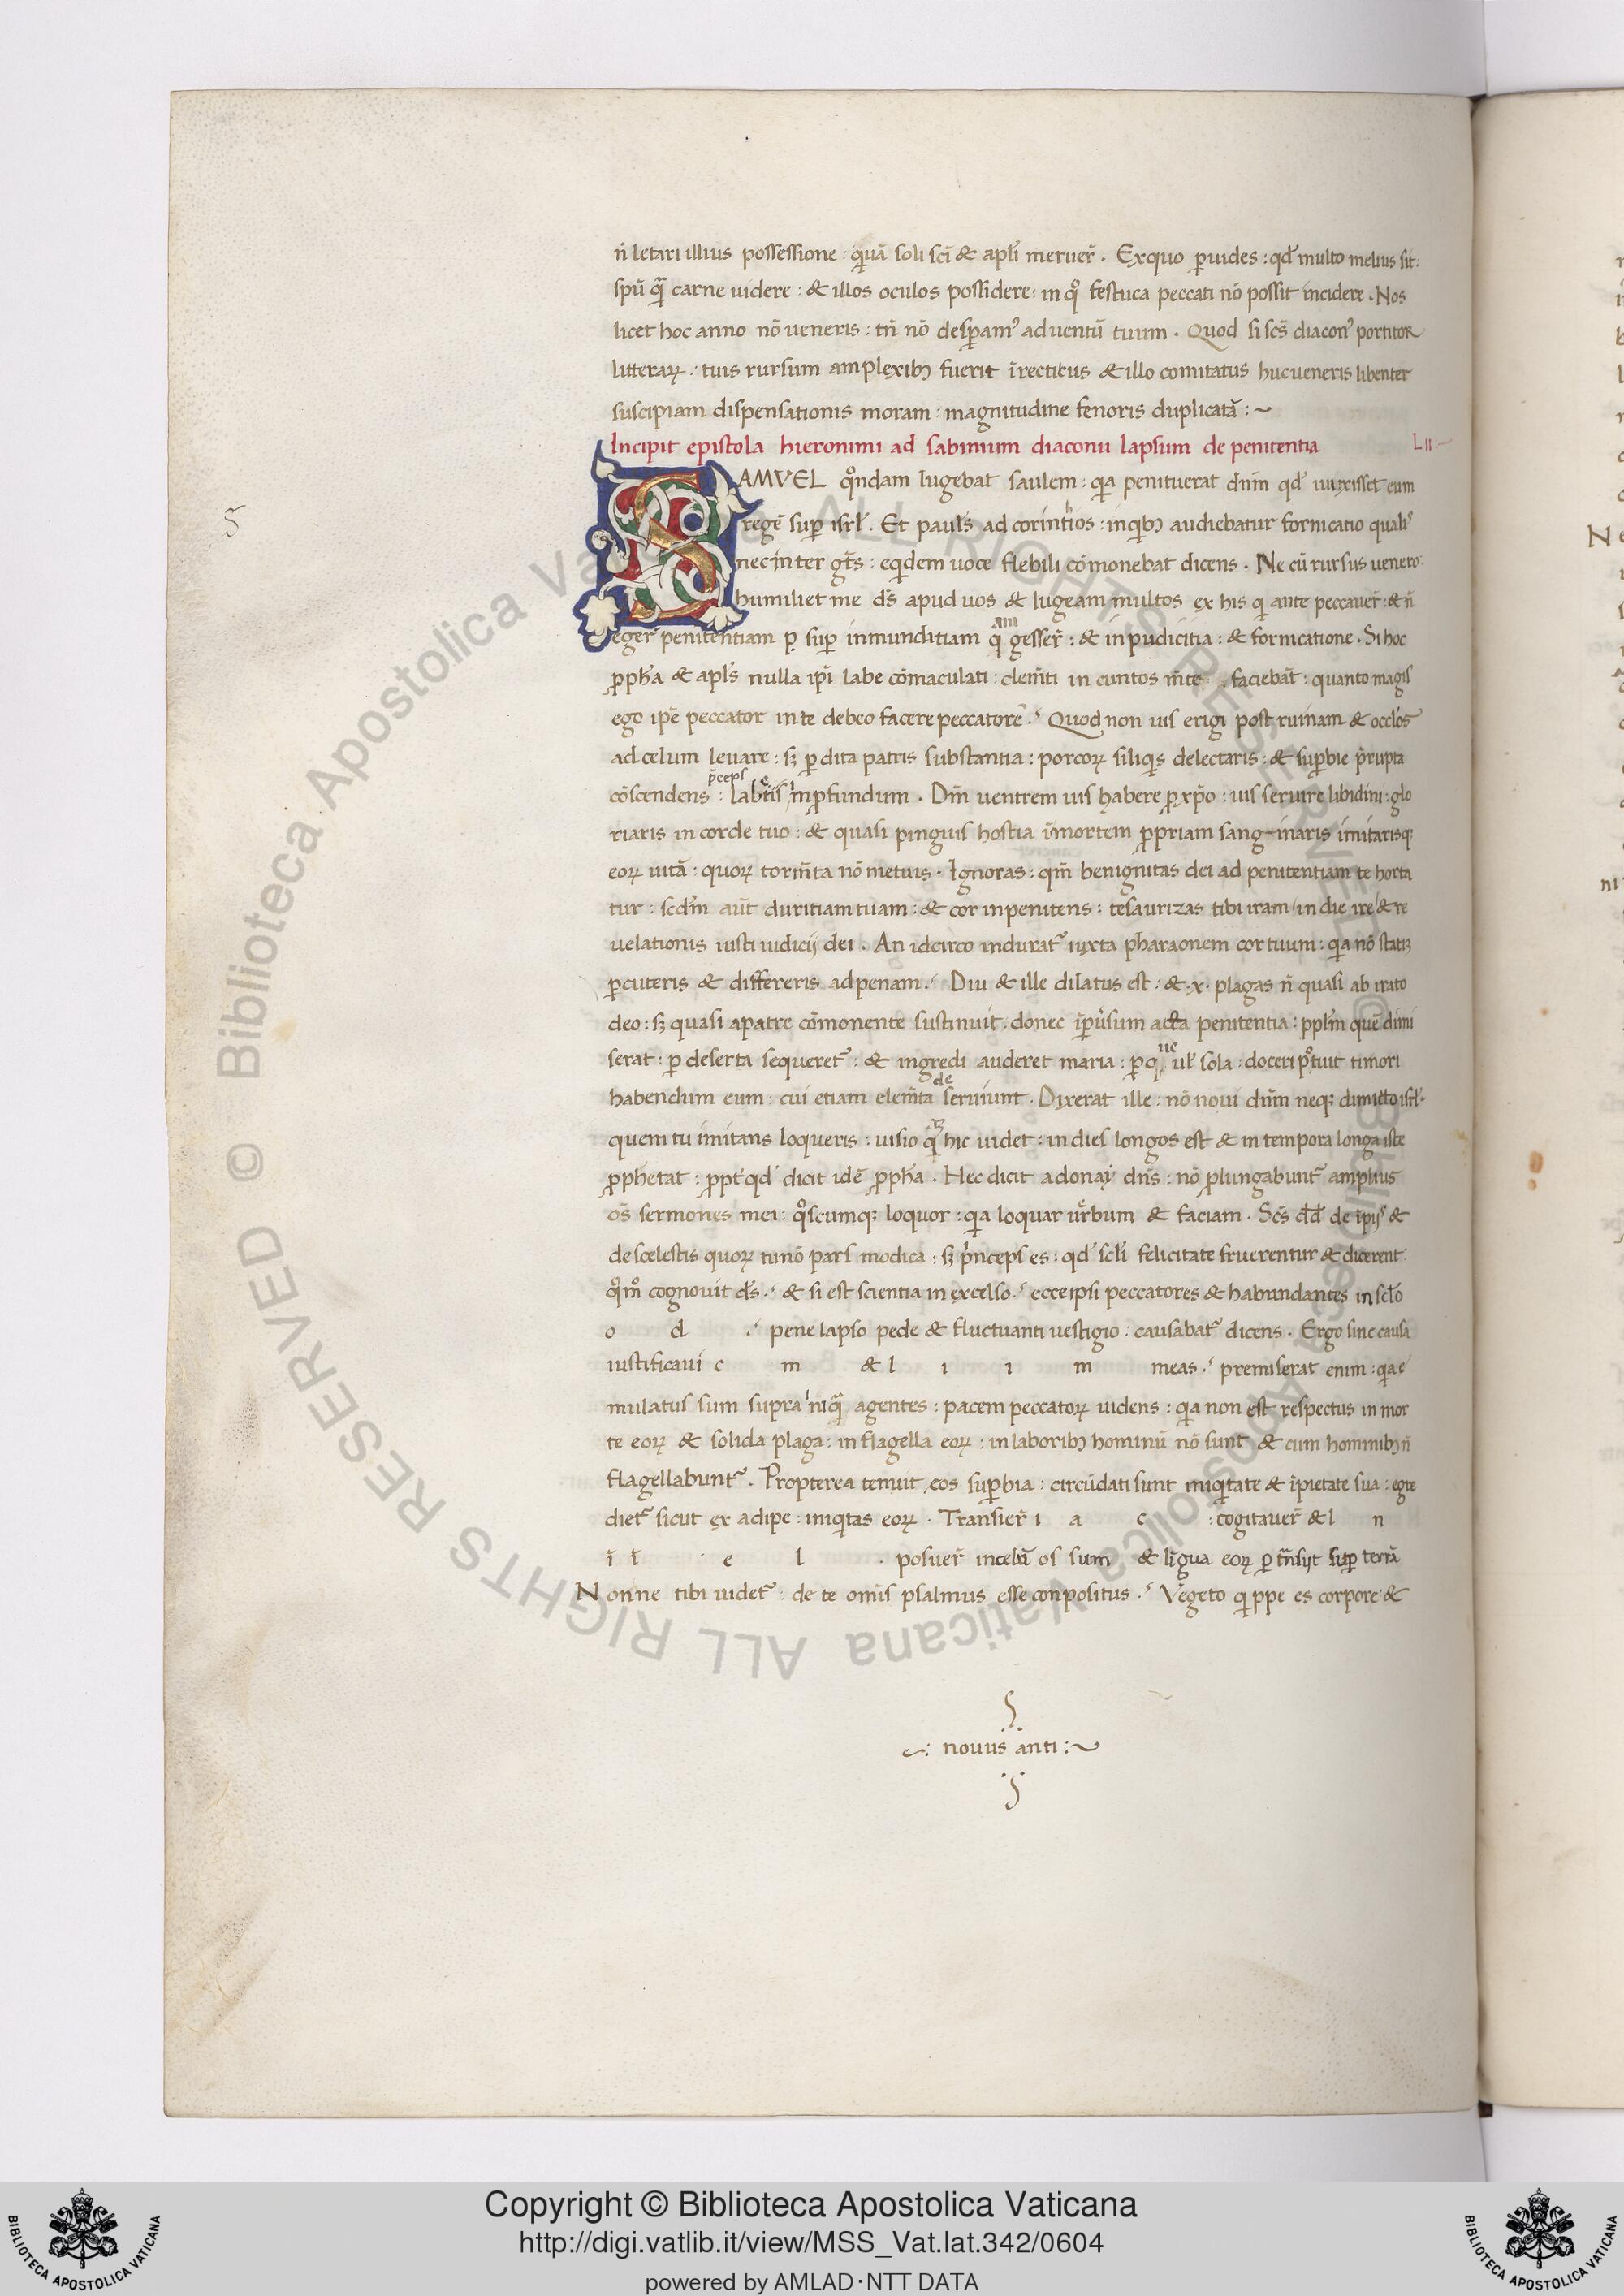 n̄ letari illius possessione : quā soli sc̄i & apl̄i meruer̄ . Exquo ꝑuides : qd̄ multo melius sit :
spū qᷓ carne uidere : & illos oculos possidere : in qͦ festuca peccati nō possit incidere . Nos
licet hoc anno nō ueneris : tn̄ nō desꝑamꝰ aduentū tuum . Quod si sc̄s diaconꝰ portitor
litteraꝝ : tuis rursum amplexibꝫ fuerit īrectitus & illo comitatus huc ueneris libenter
suscipiam dispensationis moram : magnitudine fenoris duplicatā : ~
Incipit epistola hieronimi ad sabinium diaconu lapsum de penitentia Lii
SAMVEL qͦndam lugebat saulem : qa penituerat dn̄m qd̄ unxisset eum
regē suꝑ isrl̄ . Et paul's ad corinthios : in qibꝫ audiebatur fornicatio qualiˢ
nec inter gt̄s : eqidem uoce flebili cōmonebat dicens . Ne cū rursus uenero :
humiliet me d̄s apud uos & lugeam multos ex his qi ante peccauer̄ : & n̄
eger̄ penitentiam ꝑ suꝑ inmunditiam qᵃᵐ gesser̄ : & inpudicitia : & fornicatione . Si hoc
ꝓph̄a & apl̄s nulla ip̄i labe cōmaculati : clem̄ti in cuntos m̄te faciebāt : quanto magis
ego ip̄e peccator in te debeo facere peccatorē . Quod non uis erigi post ruinam & occl̄os
ad celum leuare : sꝫ ꝑdita patris substantia : porcoꝝ siliqis delectaris : & suꝑbie p̄rupta
cōscendens : p̄ceps laberis in ꝓfundum . Dm̄ uentrem uis habere ꝑ xp̄o : uis seruire libidini : glo
riaris in corde tuo : & quasi pinguis hostia īmortem ꝓpriam sang-inaris imitarisqꝫ
eoꝝ uitā : quoꝝ torm̄ta nō metuis . Ignoras : qm̄ benignitas dei ad penitentiam te horta
tur : scd̄m aūt duritiam tuam : & cor inpenitens : tesaurizas tibi iram in die ire & re
uelationis iusti iudicij dei . An idcirco induratˀ iuxta pharaonem cor tuum : qa nō statiꝫ
ꝑcuteris & differeris ad penam . Diu & ille dilatus est : & x plagas n̄ quasi ab irato
deo : sꝫ quasi a patre cōmonente sustinuit . donec īp̄usum acta penitentia : ppl̄m quē dimi
serat : ꝑ deserta sequeretˀ : & ingredi auderet maria : ꝑ q ue ul̄ sola : doceri potuit timori
habendum eum : cui etiam elem̄ta deseruiunt . Dixerat ille : nō noui dn̄m neqꝫ dimitto isrl̄
quem tu imitans loqueris : uisio qᷓ hic uidet : in dies longos est & in tempora longa iste
ꝓphetat : ꝓpt qd̄ dicit idē ꝓph̄a . Hec dicit adonay dn̄s : nō ꝓlungabuntˀ amplius
om̄s sermones mei : qͦscumqꝫ loquor : qa loquar ūrbum & faciam . Sc̄s d̄d de īpijs &
de scelestis quoꝝ tu nō pars modica : sꝫ p̄nceps es : qd̄ scl̄i felicitate fruerentur & dicerent :
qͦmͦ cognouit d̄s . & si est scientia in excelso . ecce ipsi peccatores & habundantes in scl̄o
o d . pene lapso pede & fluctuanti uestigio : causabatˀ dicens . Ergo sine causa
iustificaui c m & l i i m meas . premiserat enim : qa e
mulatus sum supra iniqᷓ agentes : pacem peccatoꝝ uidens : qa non est respectus in mor
te eoꝝ & solida plaga : in flagella eoꝝ : in laboribꝫ hominū nō sunt & cum hominibꝫ n̄
flagellabuntˀ . Propterea tenuit eos suꝑbia : circūdati sunt iniqitate & īpietate sua : egre
dietˀ sicut ex adipe : iniqitas eoꝝ . Transier̄ i a c : cogitauer̄ & l n
ī ī e l . posuer̄ in celū os sum & līgua eoꝝ ꝑ tn̄sijt suꝑ terrā
Nonne tibi uidetˀ : de te om̄is psalmus esse conpositus . Vegeto qippe es corpore &
nouus anti :~
Copyright © Biblioteca Apostolica Vaticana
http://digi.vatlib.it/view/MSS_Vat.lat.342/0604
powered by AMLAD·NTT DATA
BIBLIOTECA APOSTOLICA VATICANA
BIBLIOTECA APOSTOLICA VATICANA
© Biblioteca Apostolica Vaticana ALL RIGHTS RESERVED
© Biblioteca Apostolica Vaticana ALL RIGHTS RESERVED